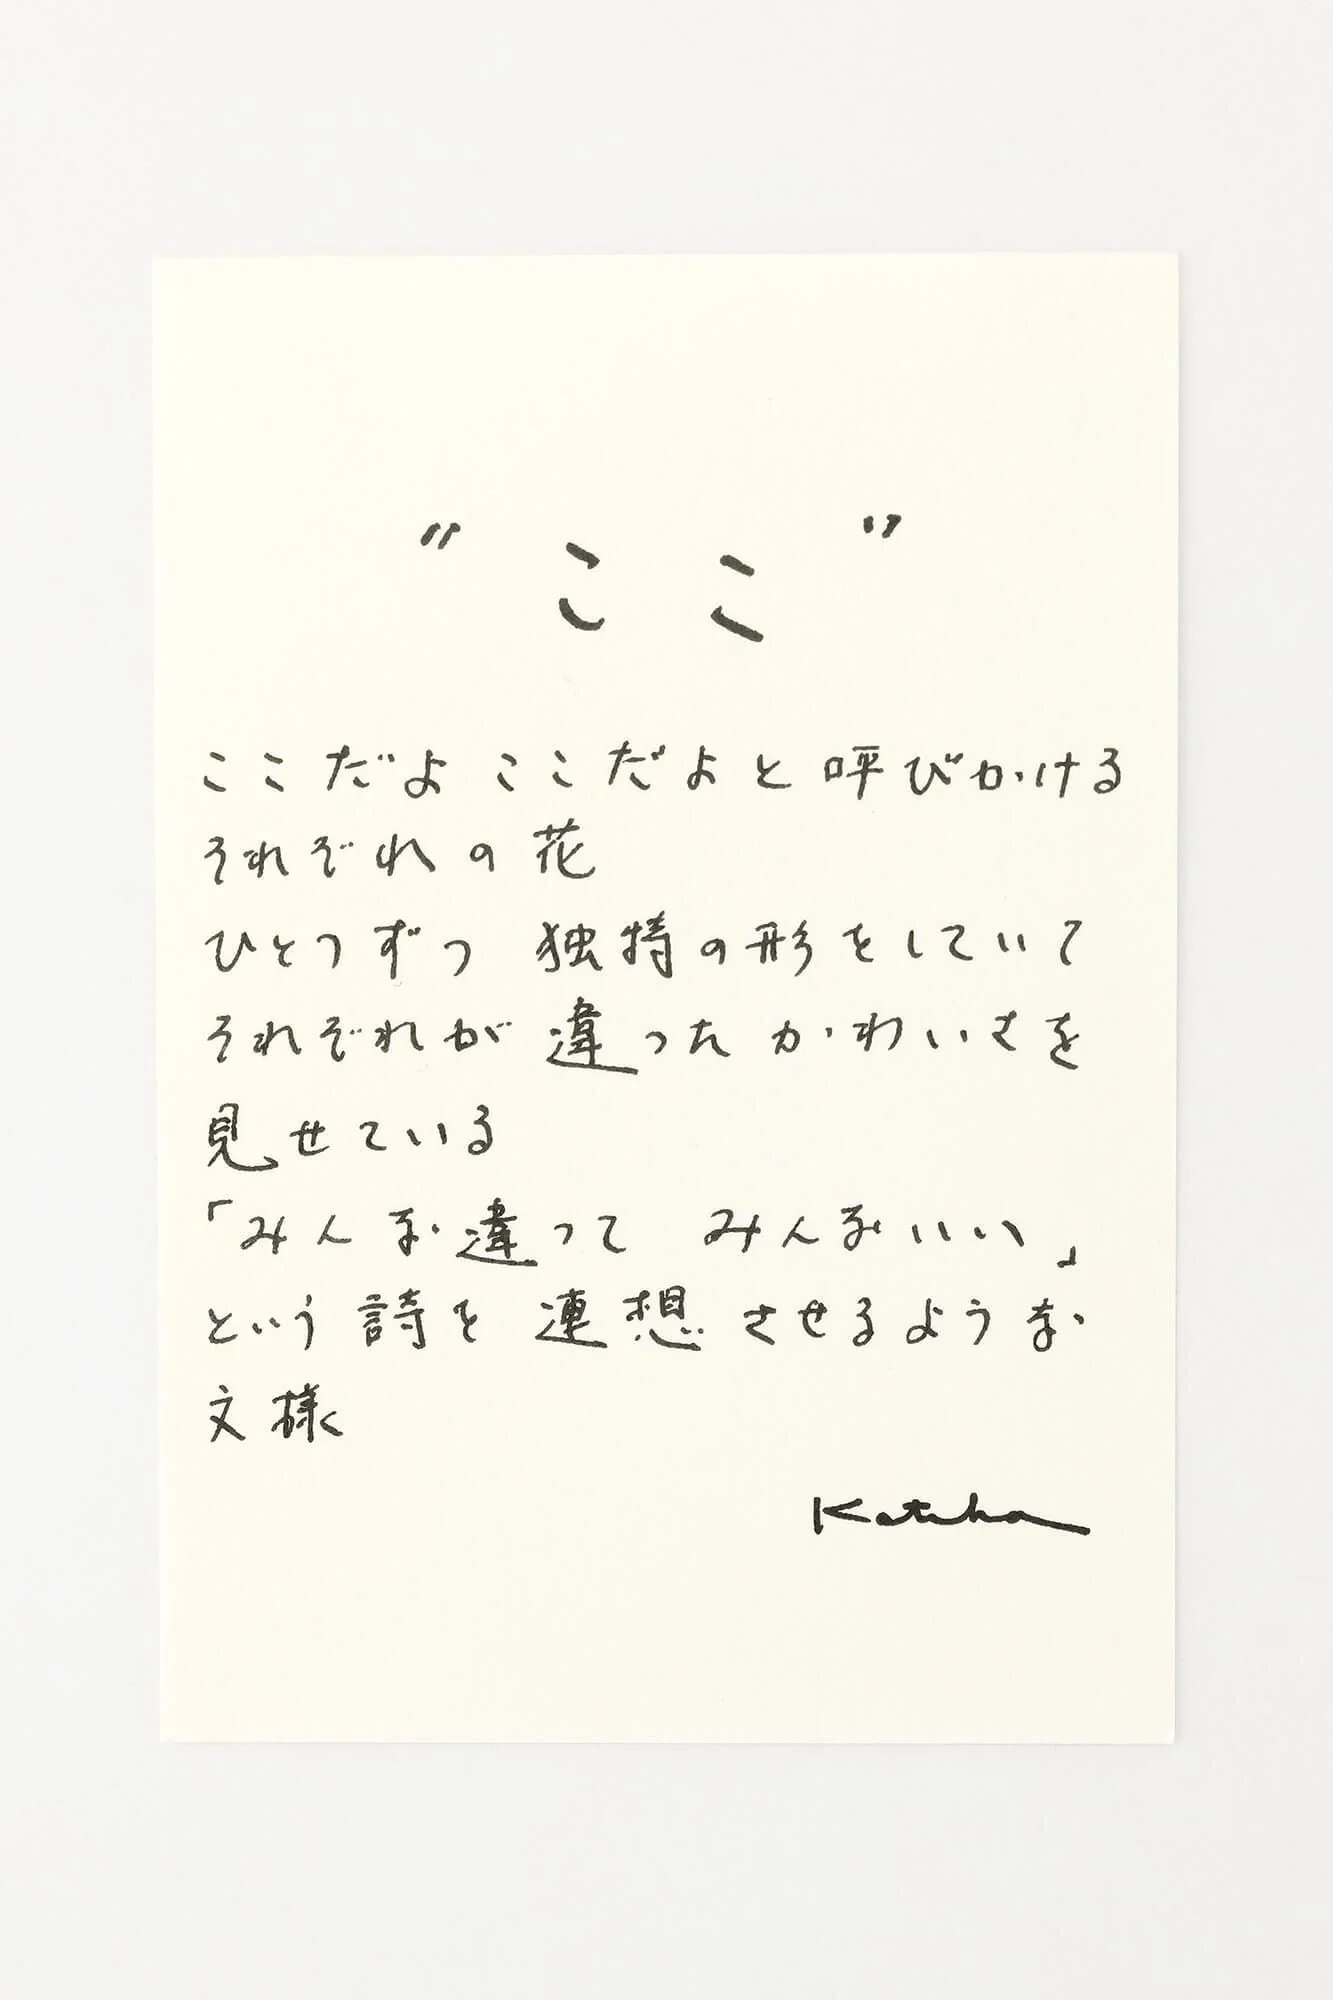 "ここ"
ここだよ ここだよと呼びかける
それぞれの花
ひとつずつ 独特の形をしていて
それぞれが違ったかわいさを
見せている
「みんな違って みんないい」
という詩を連想させるような
文様
Katuha